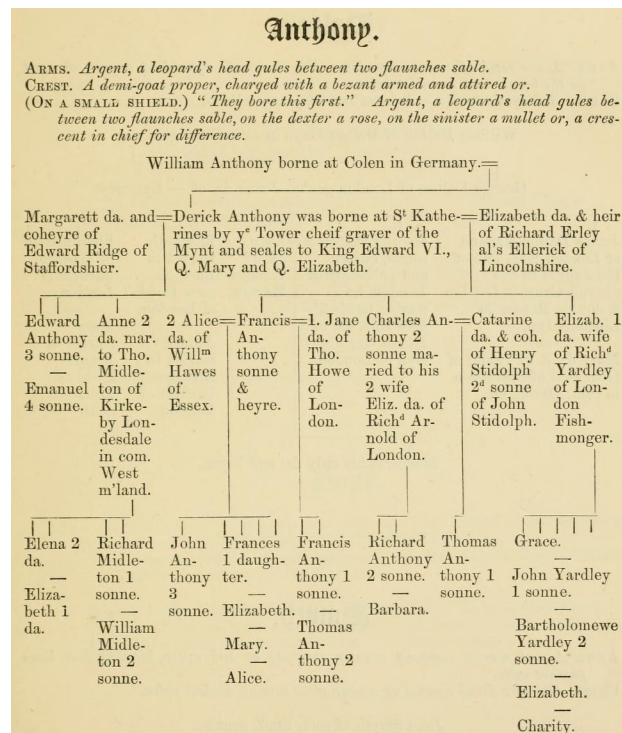 Anthony.
ARMS. Argent, a leopard's head gules between two flaunches sable.
CREST. A demi-goat proper, charged with a bezant armed and attired or.
(ON A SMALL SHIELD.) "They bore this first." Argent, a leopard's head gules be-
tween two flaunches sable, on the dexter a rose, on the sinister a mullet or, a cres-
cent in chief for difference.
William Anthony borne at Colen in Germany.=
Margarett da. and=
coheyre of
Edward Ridge of
Staffordshier.
Derick Anthony was borne at St Kathe-=
rines by ye Tower cheif graver of the
Mynt and seales to King Edward VI.,
Q. Mary and Q. Elizabeth.
Elizabeth da. & heir
of Richard Erley
al's Ellerick of
Lincolnshire.
Edward
Anthony
3 sonne.
—
Emanuel
4 sonne.
Anne 2
da. mar.
to Tho.
Midle-
ton of
Kirke-
by Lon-
desdale
in com.
West
m'land.
2 Alice=
da. of
Willm
Hawes
of
Essex.
Francis=
An-
thony
sonne
&
heyre.
1. Jane
da. of
Tho.
Howe
of
Lon-
don.
Charles An-=
thony 2
sonne ma-
ried to his
2 wife
Eliz. da. of
Richd Ar-
nold of
London.
Catarine
da. & coh.
of Henry
Stidolph
2d sonne
of John
Stidolph.
Elizab. 1
da. wife
of Richd
Yardley
of Lon-
don
Fish-
monger.
Elena 2
da.
—
Eliza-
beth 1
da.
Richard
Midle-
ton 1
sonne.
—
William
Midle-
ton 2
sonne.
John
An-
thony
3
sonne.
Frances
1 daugh-
ter.
—
Elizabeth.
—
Mary.
—
Alice.
Francis
An-
thony 1
sonne.
—
Thomas
An-
thony 2
sonne.
Richard
Anthony
2 sonne.
—
Barbara.
Thomas
An-
thony 1
sonne.
Grace.
—
John Yardley
1 sonne.
—
Bartholomewe
Yardley 2
sonne.
—
Elizabeth.
—
Charity.